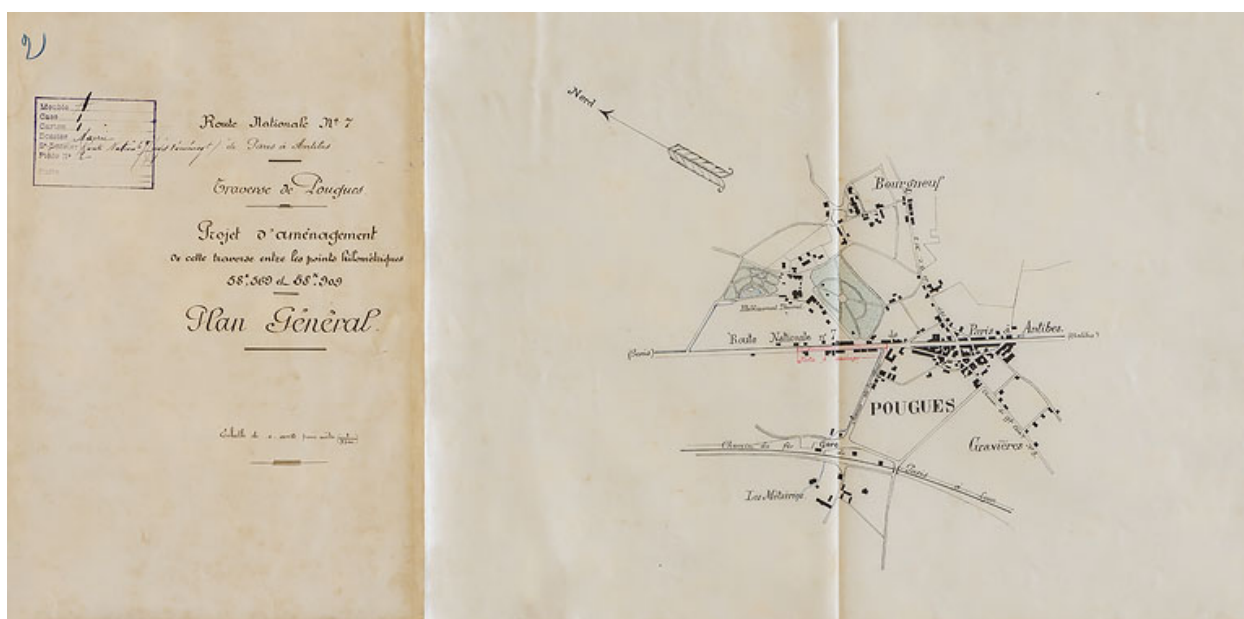 2
Meuble 1
Case 1
Carton 1
Dossier Mairie
Pièce Nº 2
Route Nationale Nº 7
de Paris à Antibes
Traverse de Pougues
Projet d'aménagement
de cette traverse entre les points kilométriques
58ᵏ.569 et 58ᵏ.909
Plan Général.
Echelle de
Nord
Bourgneuf
Etablissement Thermal
Route Nationale nº 7 de Paris à Antibes.
(Paris)
(Antibes)
POUGUES
Gravières
Chemin de fer
Gare
Paris à
Les Métairies